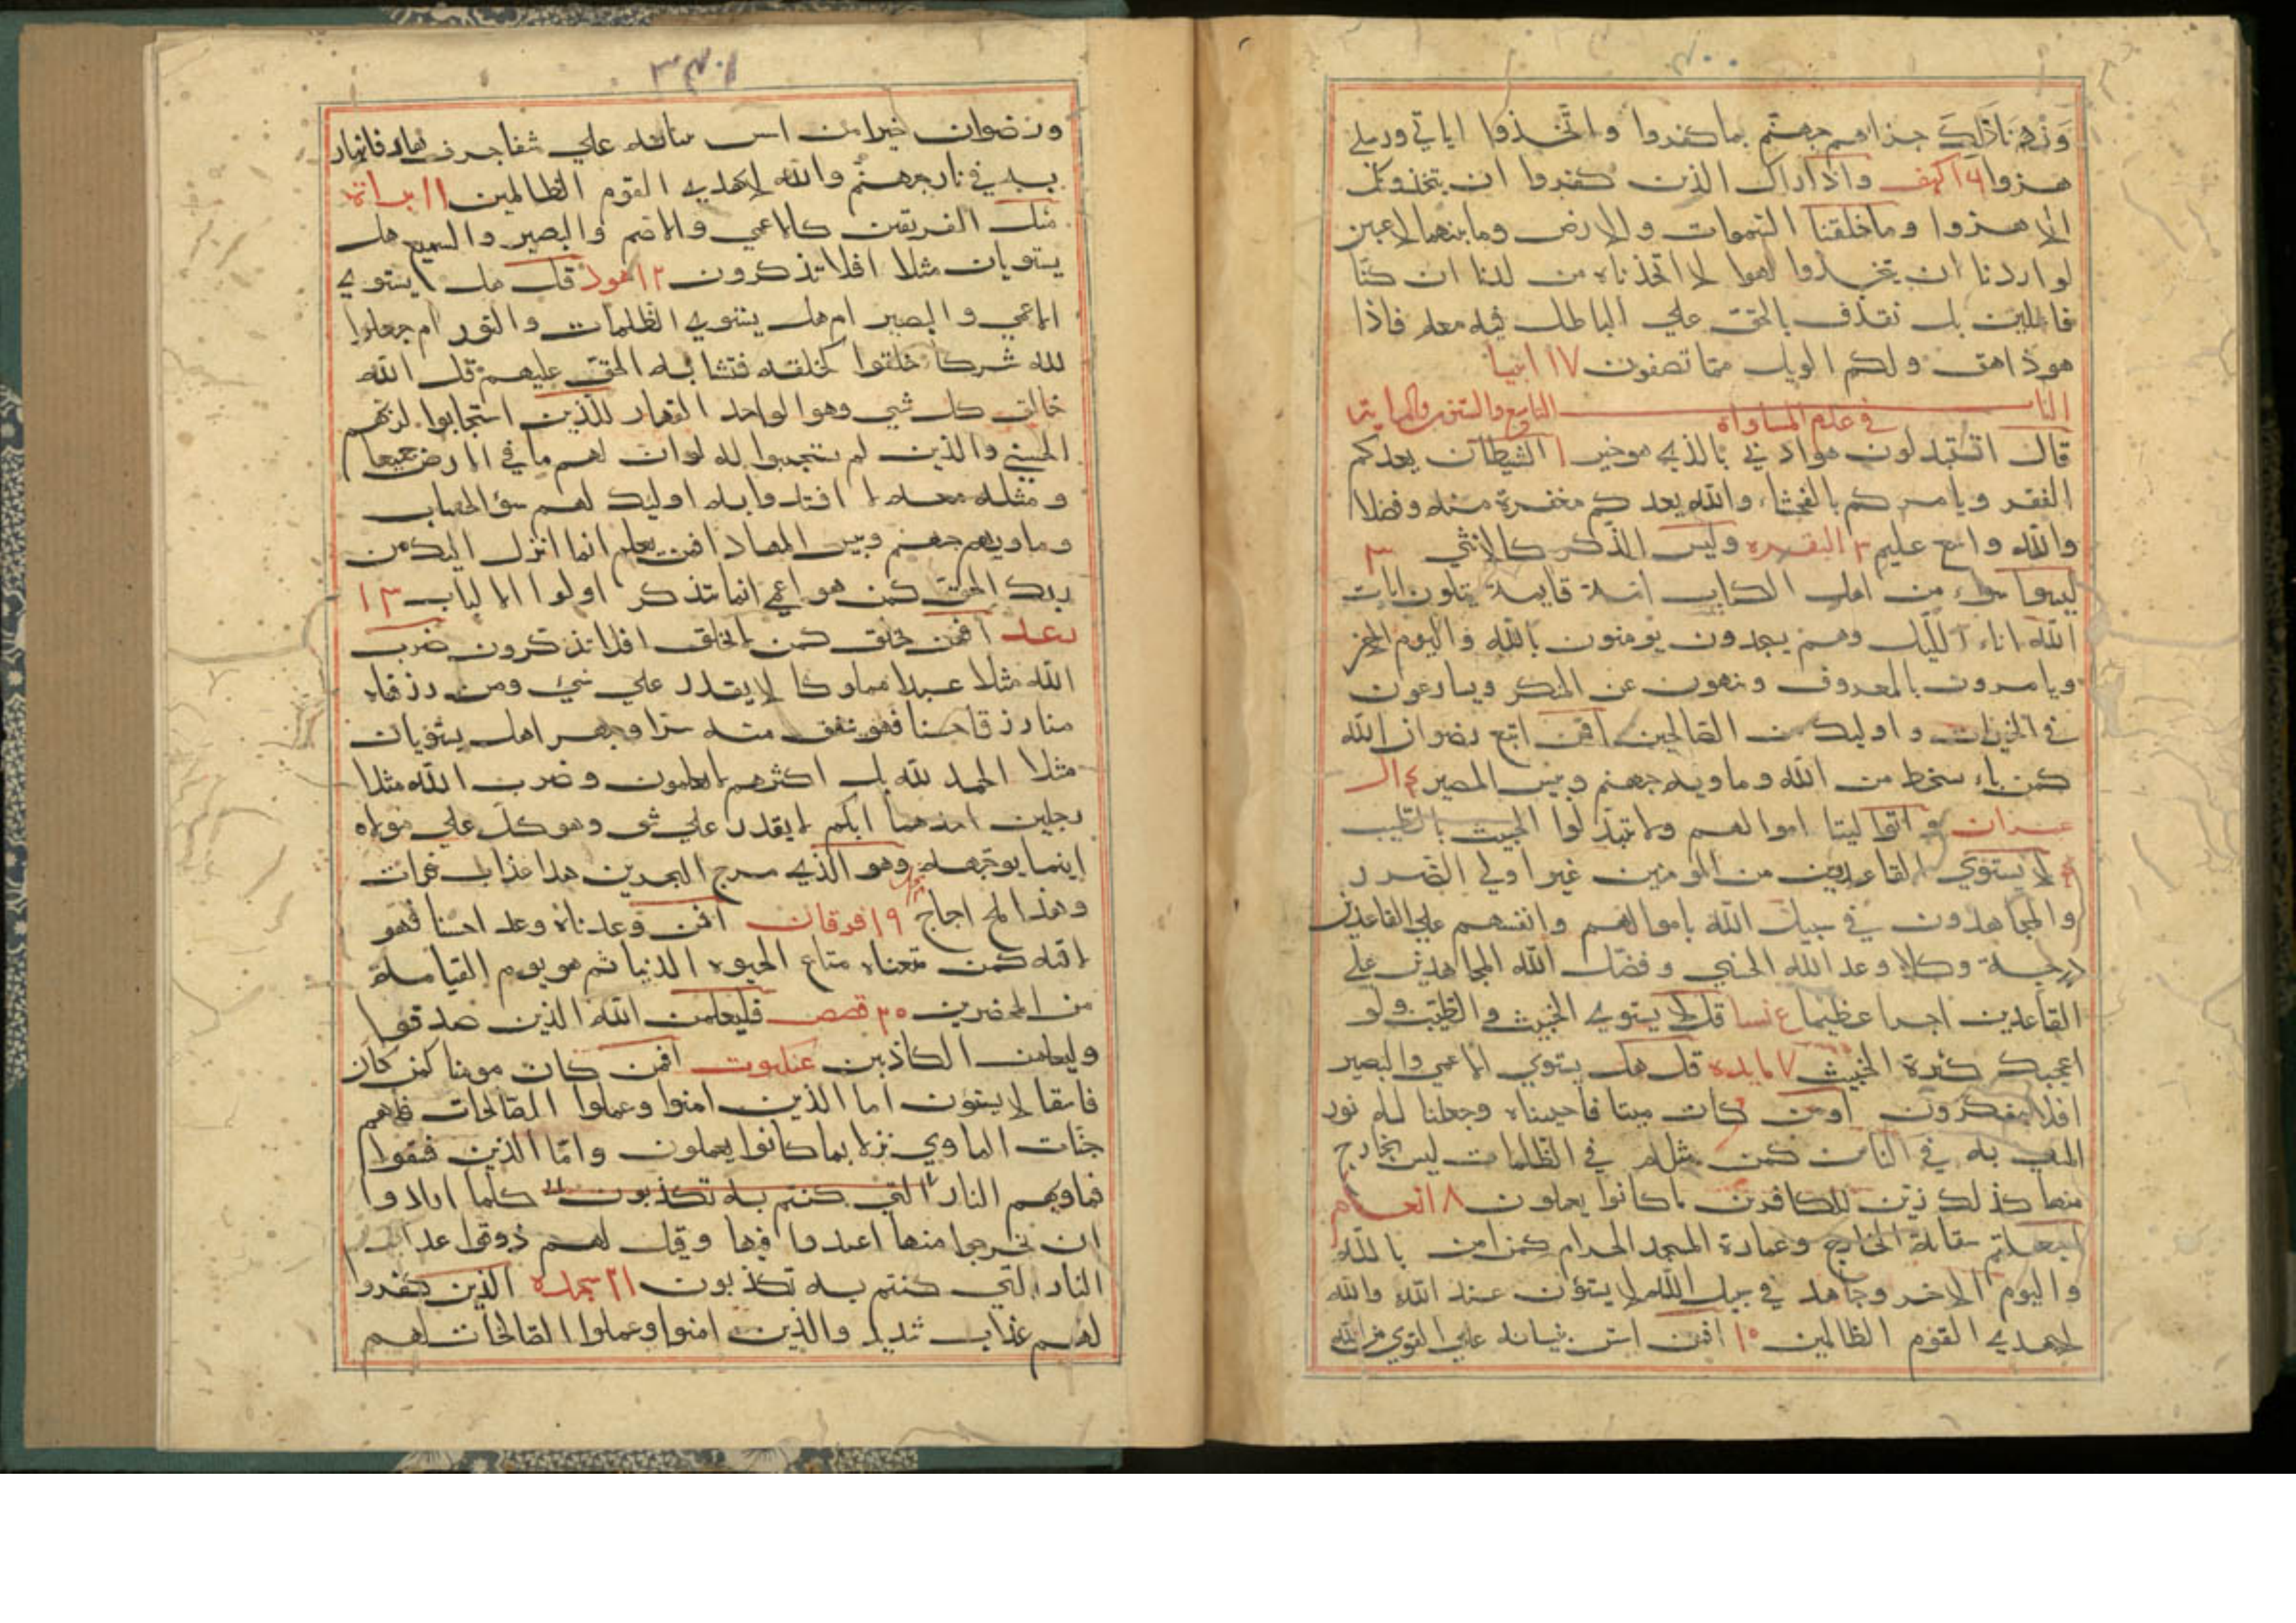 ٤٠٠
وزنا ذلك جزاهم جهنم بما كفروا واتخذوا اياتي ورسلي
هزوا ١٦ كهف واذا راك الذين كفروا ان يتخذونك
الا هزوا وما خلقنا السموات والارض وما بينهما لاعبين
لو اردنا ان نتخذوا لهوا لا اتخذناه من لدنا ان كنا
فاعلين بل نقذف بالحق علي الباطل فاذا
هو زاهق ولكم الويل مما تصفون ١٧ انبيا
الباب التاسع والستون والمايتا
في علم المساواه
قال اتستبدلون هو ادني بالذي هو خير ١ الشيطان يعدكم
الفقر ويامركم بالفحشاء والله يعدكم مغفرة منه وفضلا
والله واسع عليم ٢ البقره وليس الذكر كالانثي ٣
ليسوا سواء من اهل الكتاب امة قايمة يتلون ايات
الله اناء الليل وهم يسجدون يومنون بالله واليوم الاخر
ويامرون بالمعروف وينهون عن المنكر ويسارعون
في الخيرات واوليك من الصالحين افمن اتبع رضوان الله
كمن باء بسخط من الله وماويه جهنم وبيس المصير ٤ ال
عمران واتوا ليتا اموالهم ولا تبدلوا الخبيث بالطيب
لا يستوي القاعدين من المومنين غير اولي الضرر
والمجاهدون في سبيل الله باموالهم وانفسهم علي القاعدين
درجة وكلا وعد الله الحسني وفضل الله المجاهدين علي
القاعدين اجرا عظيما نسا قل لا يستوي الخبيث والطيب ولو
اعجبك كثرة الخبيث ٧ مايده قل هل يستوي الاعمي والبصير
افلا تتفكرون اومن كان ميتا فاحييناه وجعلنا له نور
يمشي به في الناس كمن مثله في الظلمات ليس بخارج
منها كذلك زين للكافرين ما كانوا يعملون ٨ انعام
اجعلتم سقاية الحاج وعمارة المسجد الحرام كمن امن بالله
واليوم الاخر وجاهد في سبيل الله لا يستؤن عند الله والله
لا يهدي القوم الظالمين ١٠ افمن اسس بنيانه علي التقوي من الله
٤٠١
ورضوان خير امن اسس بنيانه علي شفا جرف هار فانهار
به في نار جهنم والله لا يهدي القوم الظالمين ١١ براة
مثل الفريقين كالاعمي والاصم والبصير والسميع هل
يستويان مثلا افلا تذكرون ١٢ هود قل هل يستوي
الاعمي والبصير ام هل يستوي الظلمات والنور ام جعلوا
لله شركا خلقوا كخلقه فتشابه الحق عليهم قل الله
خالق كل شي وهو الواحد القهار للذين استجابوا لربهم
الحسني والذين لم يستجيبوا لله لو ان لهم ما في الارض جميعا
ومثله معه لا افتدوا به اوليك لهم سؤ الحساب
وماويهم جهنم وبيس المهاد افمن يعلم انما انزل اليك من
ربك الحق كمن هو اعمي انما يتذكر اولوا الالباب ١٣
رعد افمن يخلق كمن لا يخلق افلا تذكرون ضرب
الله مثلا عبدا مملوكا لا يقدر علي شيء ومن رزقناه
منا رزقا حسنا فهو ينفق منه سرا وجهرا هل يستويان
مثلا الحمد لله بل اكثرهم لا يعلمون وضرب الله مثلا
رجلين احدهما ابكم لا يقدر علي شي وهو كل علي مولاه
اينما يوجهه وهو الذي مرج البحرين هذا عذاب فرات
وهذا ملح اجاج ١٩ فرقان افمن وعدناه وعدا حسنا فهو
لاقيه كمن متعناه متاع الحيوه الدنيا ثم هو يوم القيامة
من المحضرين ٢٠ قصص فليعلمن الله الذين صدقوا
وليعلمن الكاذبين عنكبوت افمن كان مومنا كمن كان
فاسقا لا يستؤن اما الذين امنوا وعملوا الصالحات فلهم
جنات الماوي نزلا بما كانوا يعملون واما الذين فسقوا
فماويهم النار التي كنتم به تكذبون كلما ارادوا
ان يخرجوا منها اعيدوا فيها وقيل لهم ذوقوا عذاب
النار التي كنتم به تكذبون ٢١ سجده الذين كفروا
لهم عذاب شديد والذين امنوا وعملوا الصالحات لهم